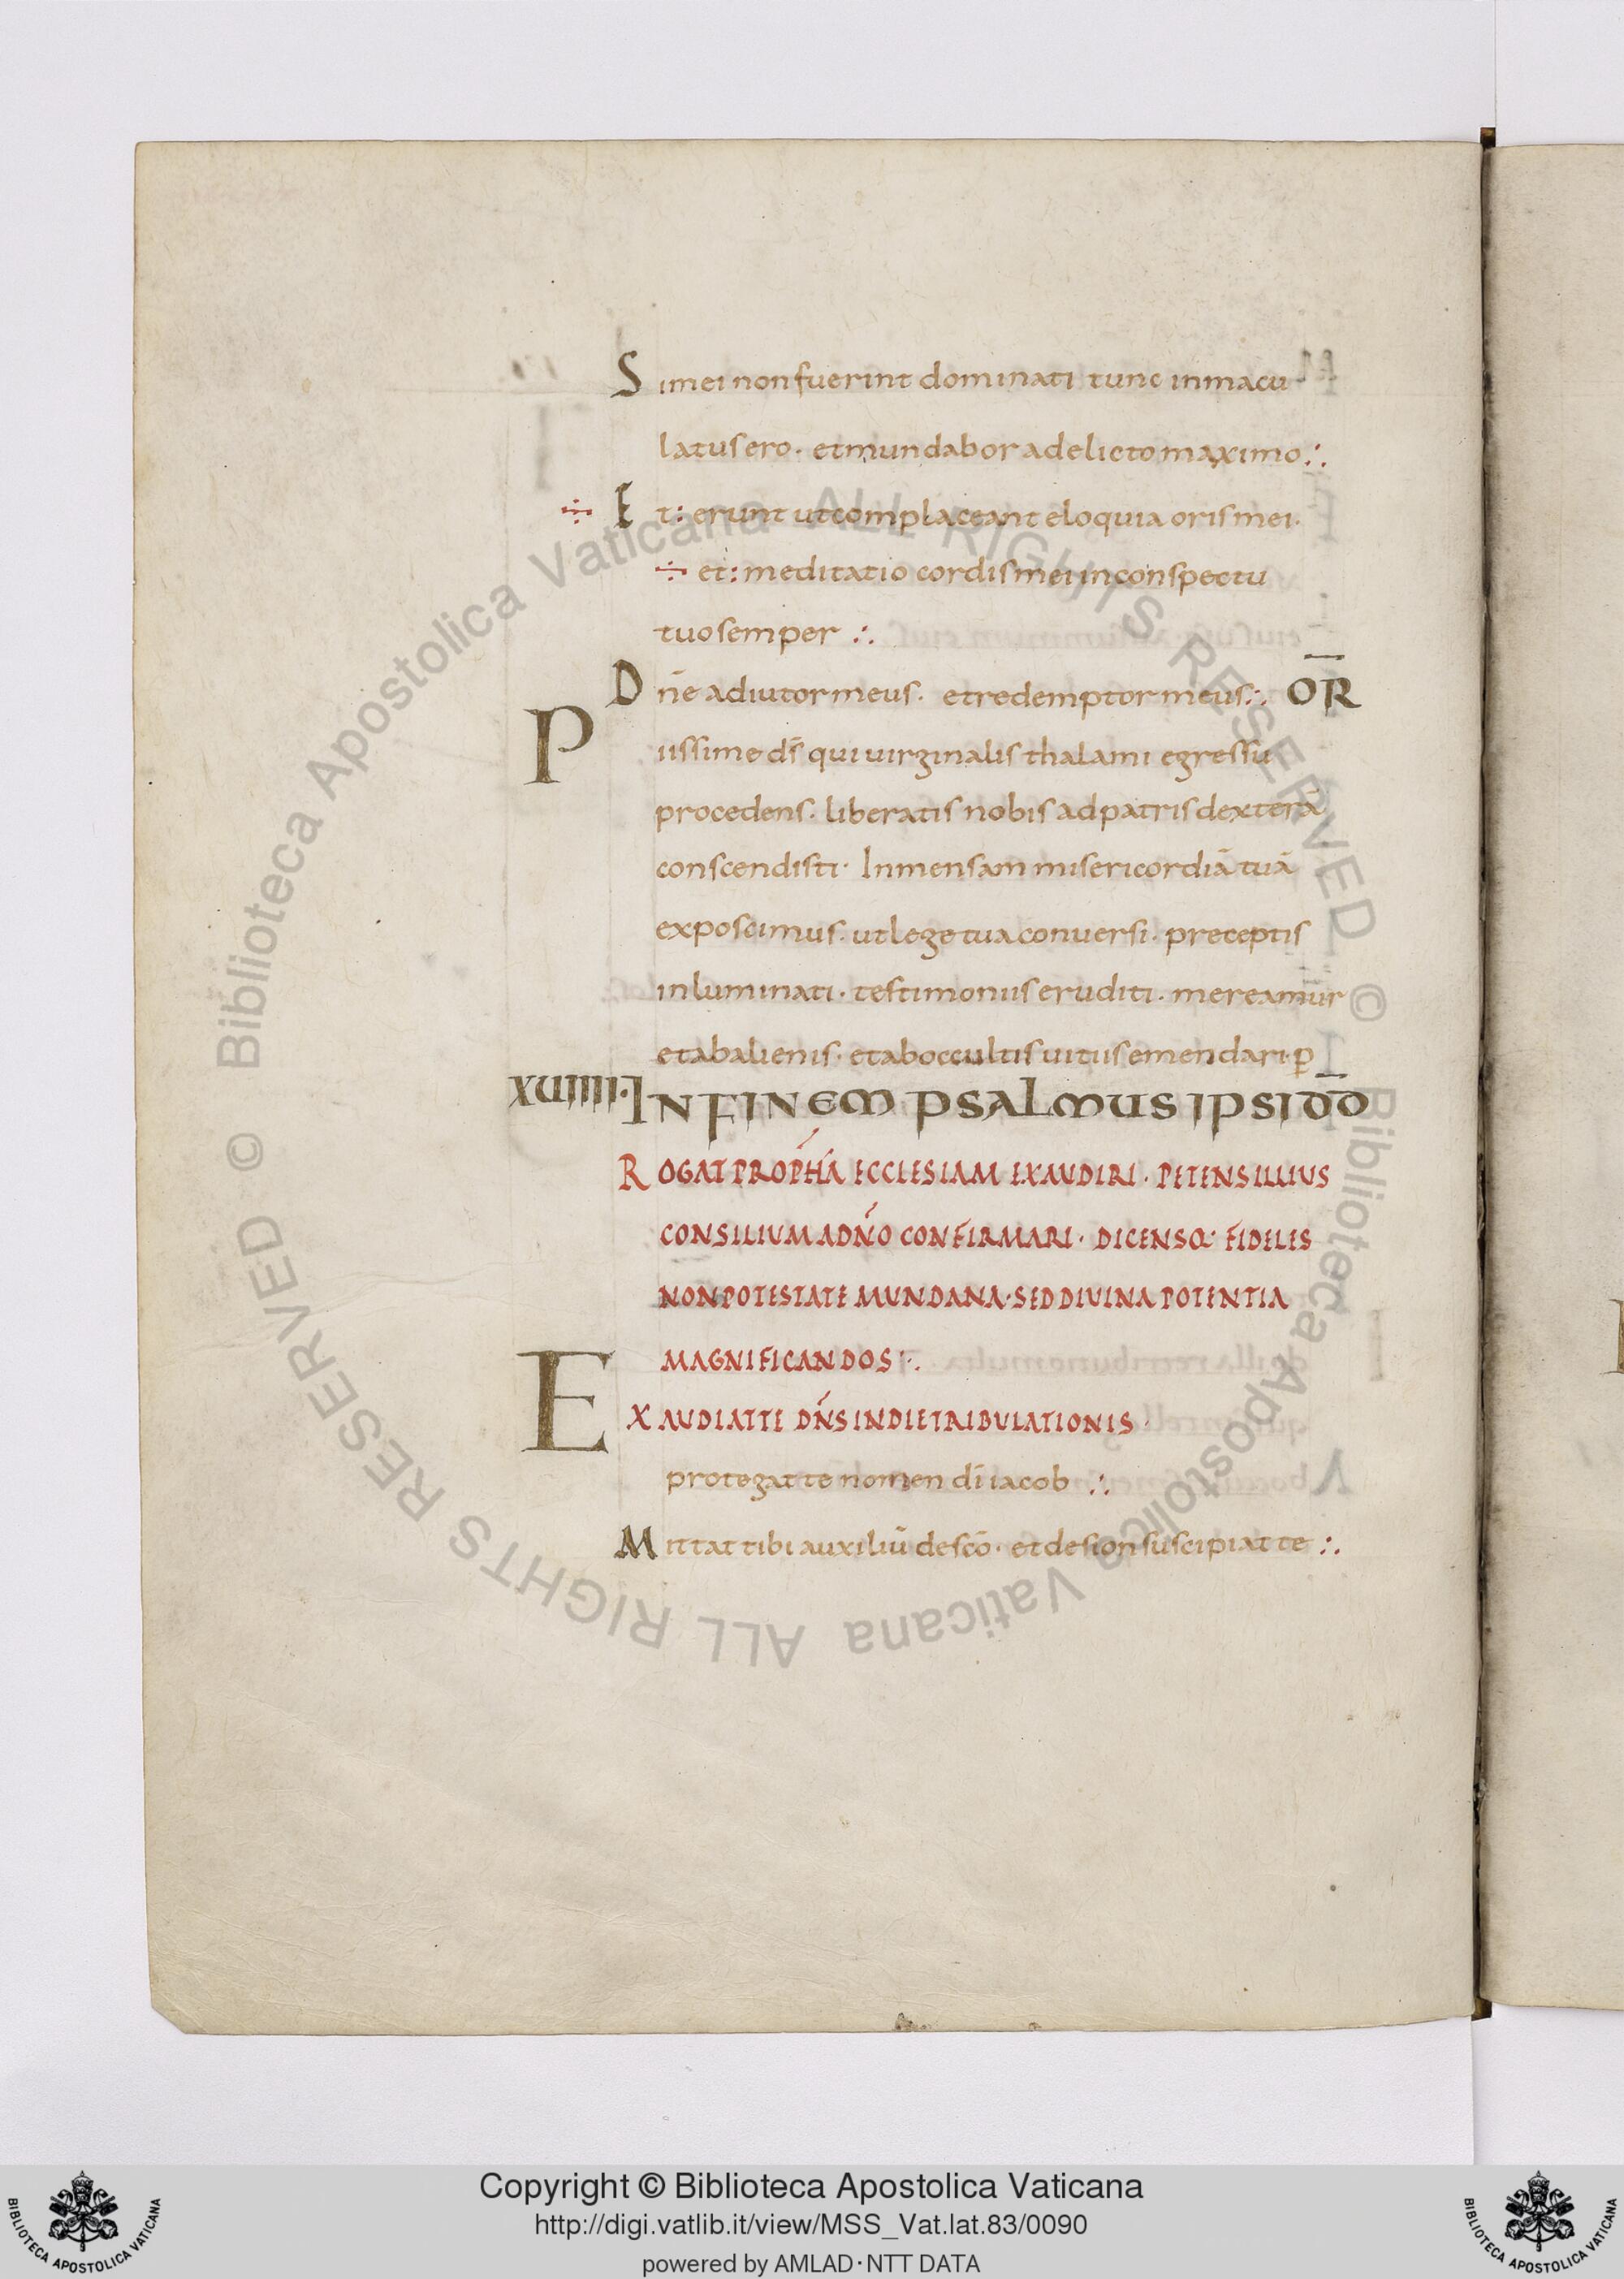 Simei nonfuerint dominati tunc inmacu
latusero · etmundabor adelicto maximo ⁖
÷ Et: erunt utcomplaceant eloquia orismei ·
÷ et: meditatio cordismei inconspectu
tuosemper ⁖
Dn̄e adiutormeus · etredemptormeus ⁖ OR̄
Piissime ds̄ qui uirginalis thalami egressu
procedens · liberatis nobis adpatrisdexterā
conscendisti · Inmensam misericordiā tuā
exposcimus · utlegetuaconuersi · preceptis
inluminati · testimoniiseruditi · mereamur
etabalienis · etaboccultisuitiisemendari · p̄
XUIIII · INFINEM PSALMUS IPSI DD̄
ROGATPROPH́A ECCLESIAM EXAUDIRI · PETENSILLIUS
CONSILIUMADŃO CONFIRMARI · DICENSQ· FIDELES
NONPOTESTATE MUNDANA · SEDDIUINA POTENTIA
MAGNIFICANDOS ⁖
EXAUDIATTE DŃSINDIETRIBULATIONIS ·
protegatte nomen dī iacob ⁖
Mittattibi auxiliū descō · etdesionsuscipiatte ⁖
Biblioteca Apostolica Vaticana ALL RIGHTS RESERVED ©
Biblioteca Apostolica Vaticana ALL RIGHTS RESERVED ©
Copyright © Biblioteca Apostolica Vaticana
http://digi.vatlib.it/view/MSS_Vat.lat.83/0090
powered by AMLAD·NTT DATA
BIBLIOTECA APOSTOLICA VATICANA
BIBLIOTECA APOSTOLICA VATICANA